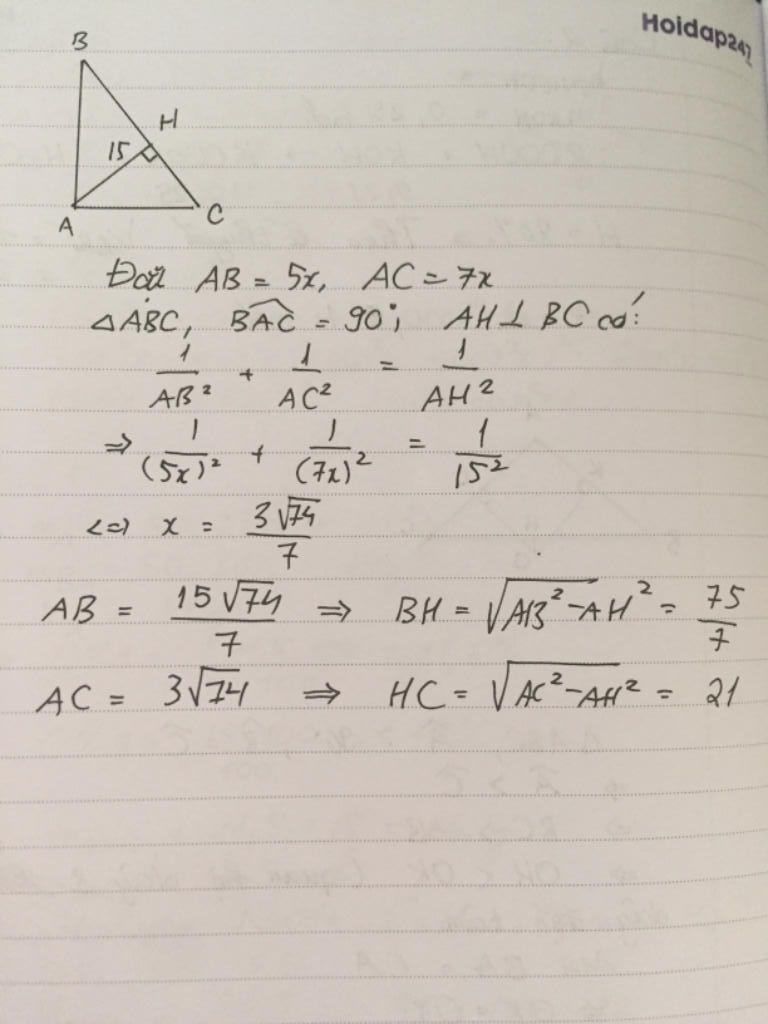 Hoidap247
B
H
15
A
C
Đặt AB = 5x, AC = 7x
△ABC, \widehat{BAC} = 90°; AH ⊥ BC có:
\frac{1}{AB^2} + \frac{1}{AC^2} = \frac{1}{AH^2}
⇒ \frac{1}{(5x)^2} + \frac{1}{(7x)^2} = \frac{1}{15^2}
<=> x = \frac{3\sqrt{74}}{7}
AB = \frac{15\sqrt{74}}{7} ⇒ BH = \sqrt{AB^2 - AH^2} = \frac{75}{7}
AC = 3\sqrt{74} ⇒ HC = \sqrt{AC^2 - AH^2} = 21